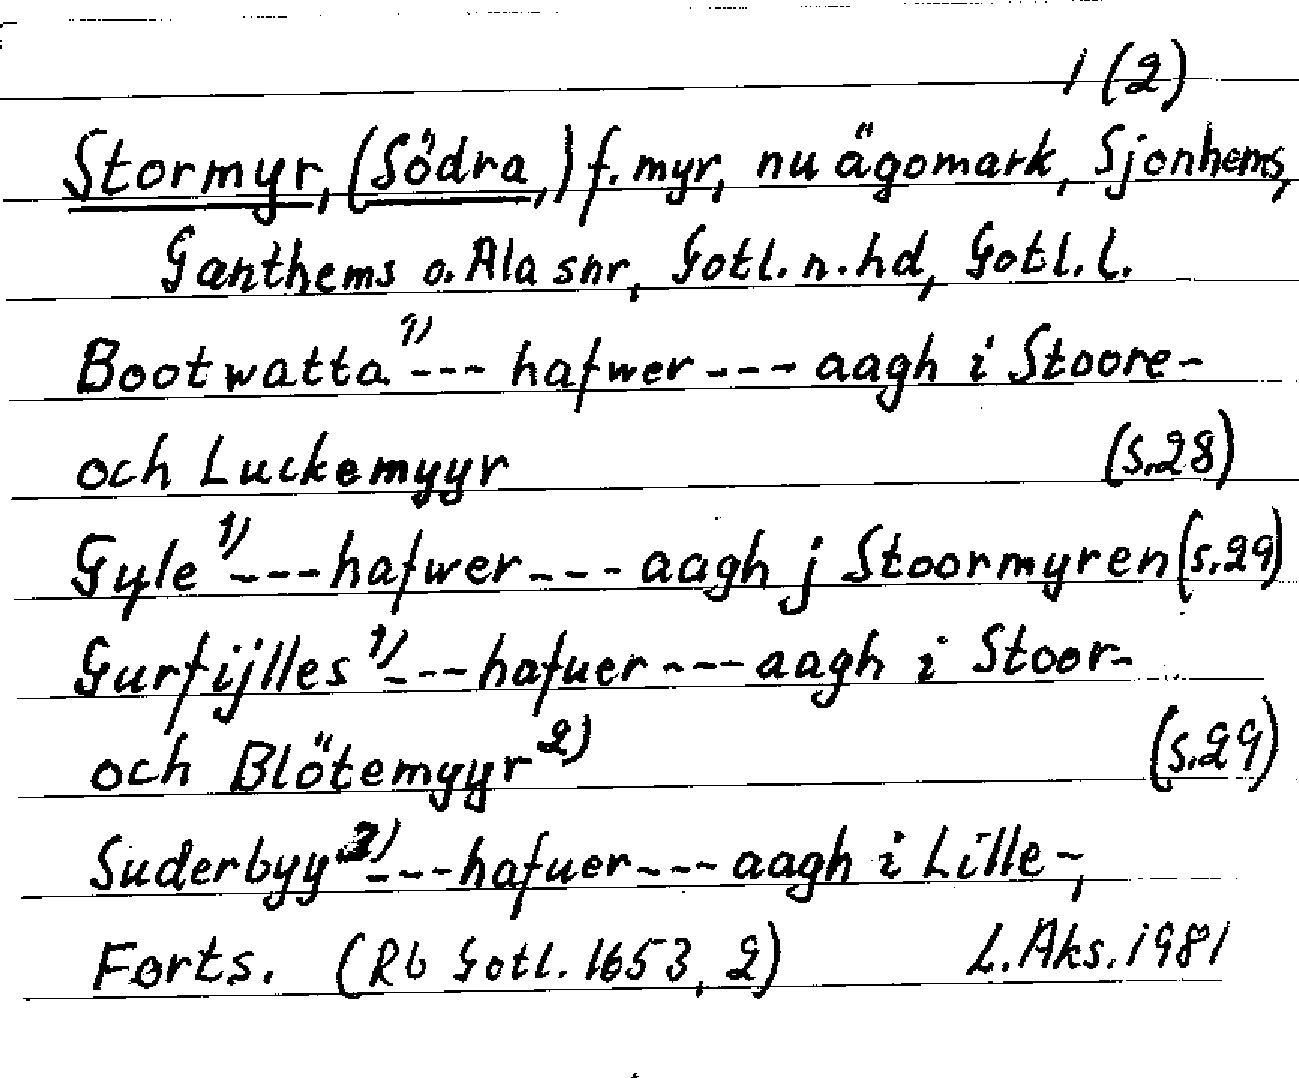 1 (2)
Stormyr, (Södra,) f. myr, nu ägomark, Sjonhems,
Ganthems o. Ala snr, Gotl. n. hd, Gotl. l.
Bootwatta 1) --- hafwer --- aagh i Stoore-
och Luckemyyr (s.28)
Gyle 1) --- hafwer --- aagh j Stoormyren (s.29)
Gurfijlles 1) --- hafuer --- aagh i Stoor-
och Blötemyyr 2) (s.29)
Suderbyy 2) --- hafuer --- aagh i Lille-,
Forts. (Rb Gotl. 1653, 2) L. Aks. 1981